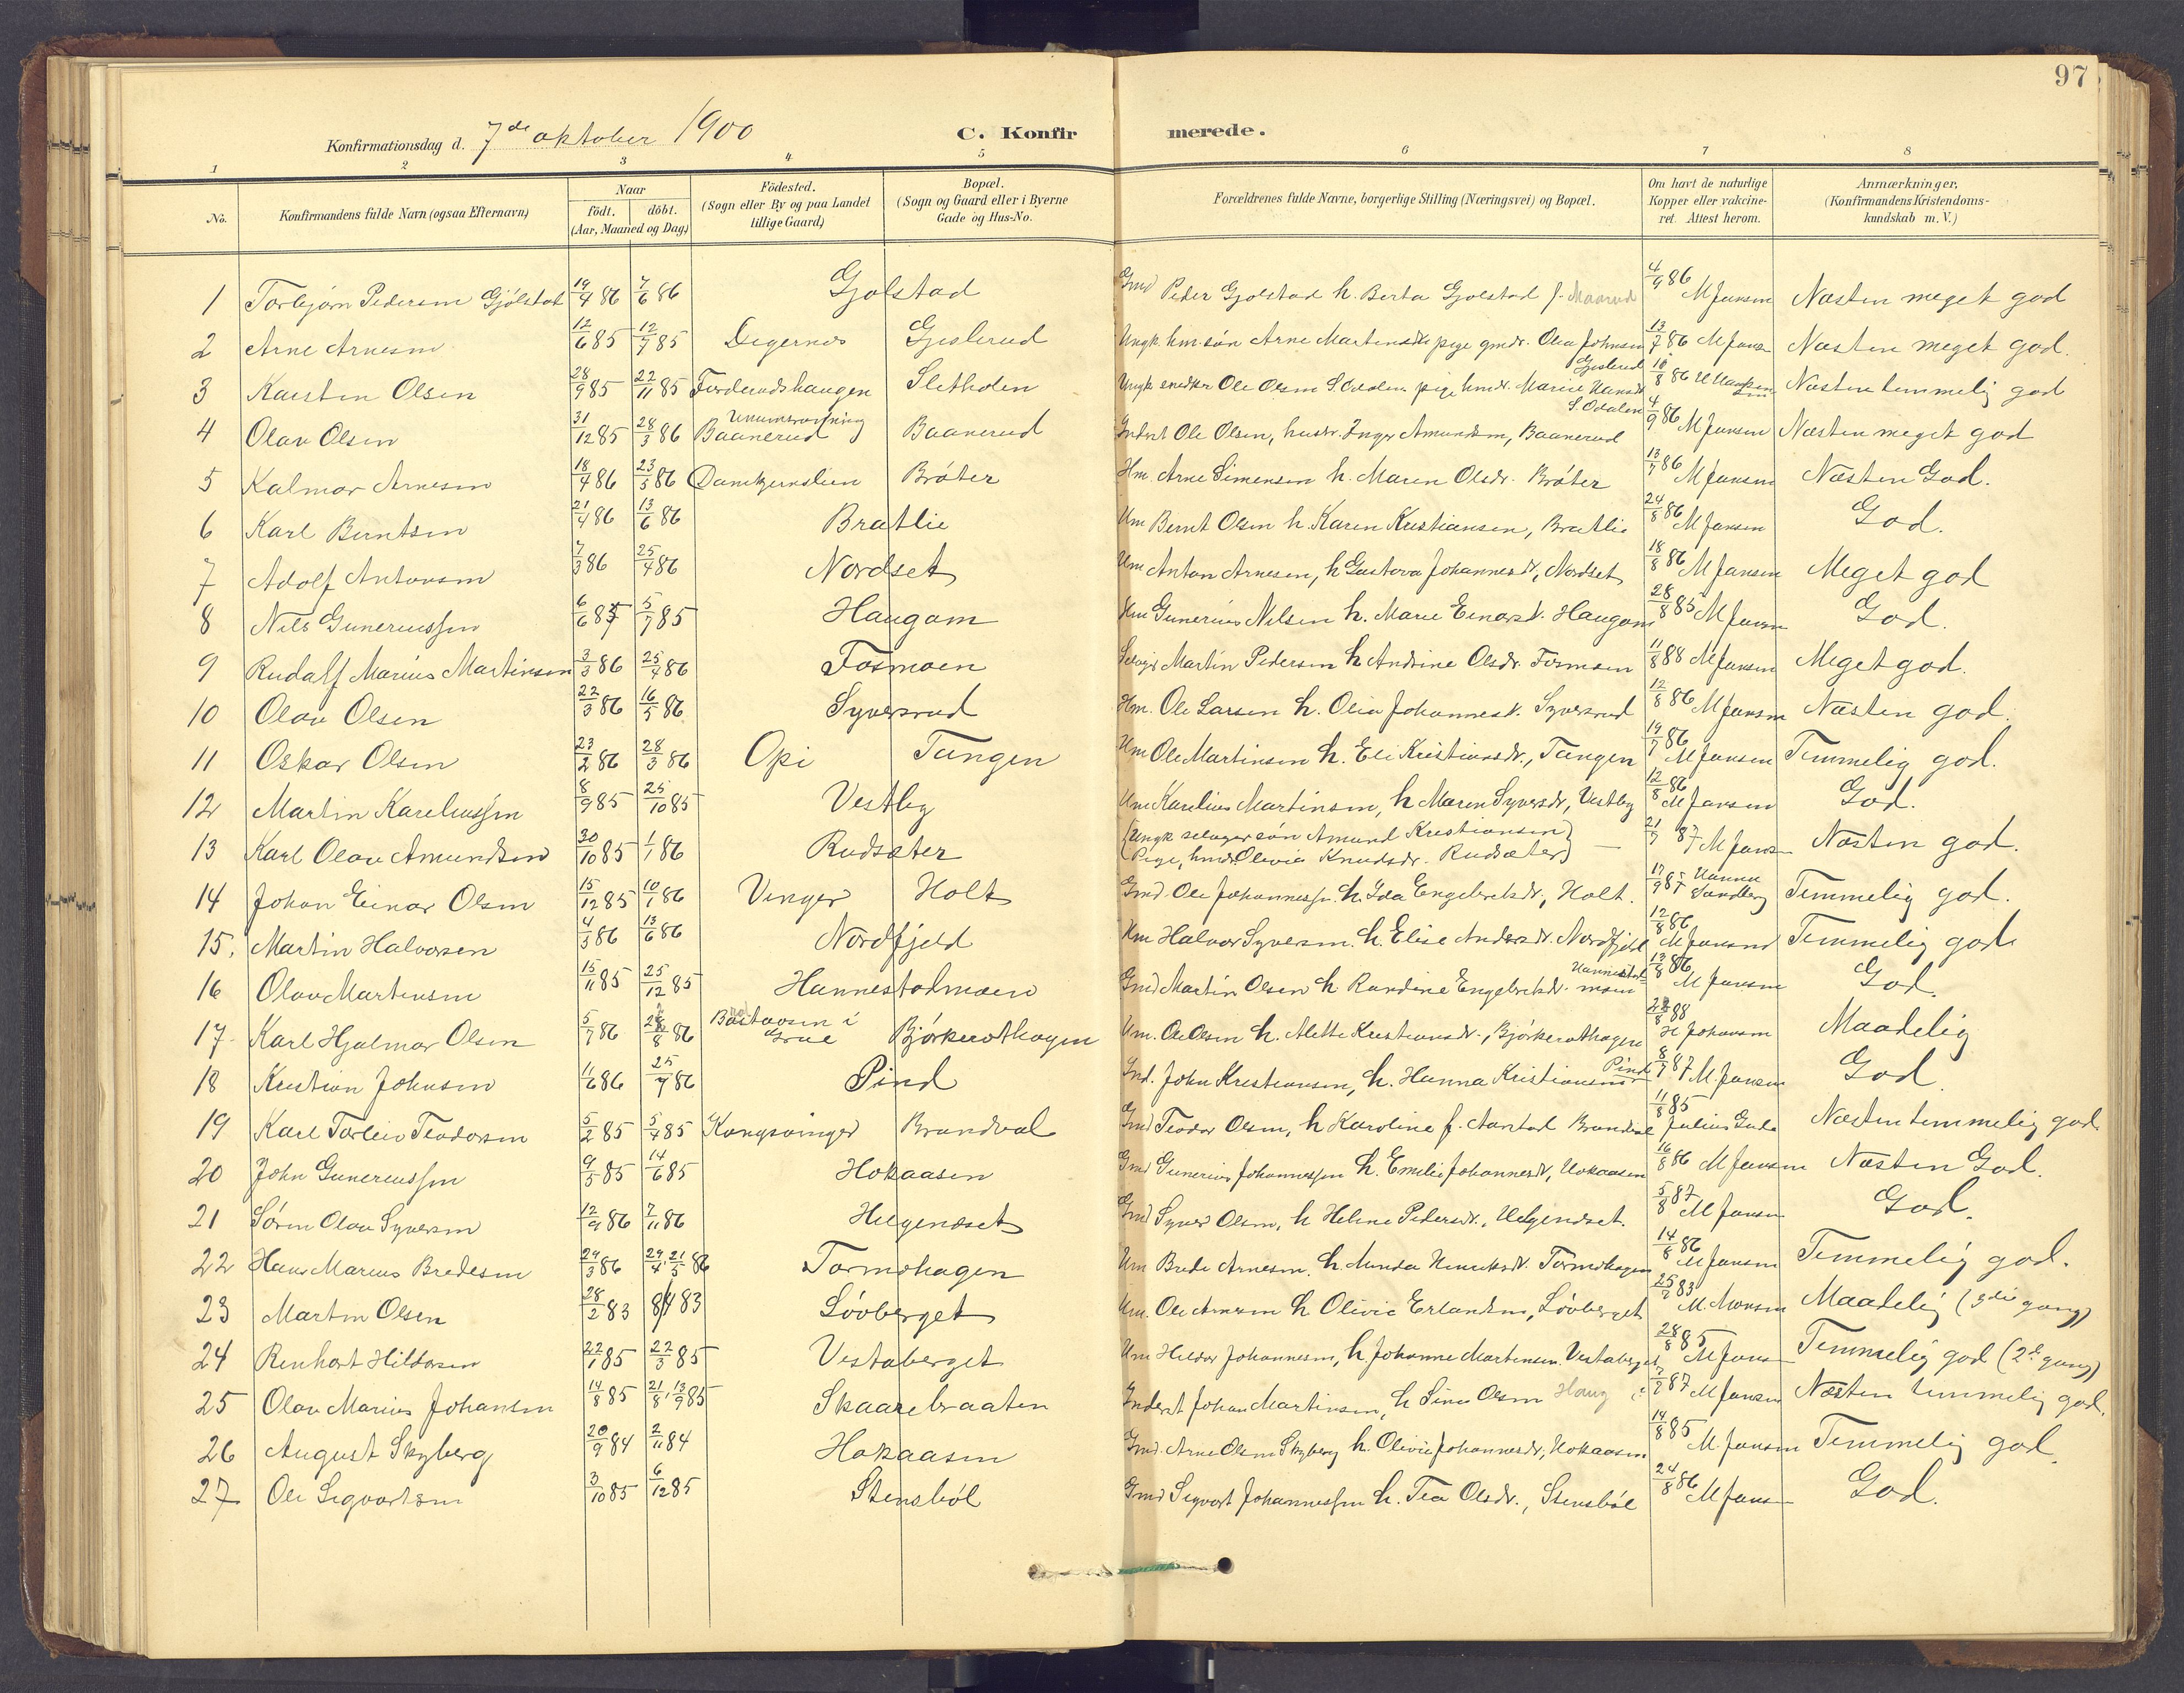 97
Konfirmationsdag d. 7de oktober 1900 C. Konfirmerede.
1 2 3 4 5 6 7 8
No. Konfirmandens fulde Navn (ogsaa Efternavn) Naar födt. döbt. (Aar, Maaned og Dag) Födested. (Sogn eller By og paa Landet tillige Gaard) Bopæl. (Sogn og Gaard eller i Byerne Gade og Hus-No. Forældrenes fulde Navne, borgerlige Stilling (Næringsvei) og Bopæl. Om havt de naturlige Kopper eller vakcineret. Attest herom. Anmærkninger, (Konfirmandens Kristendomskundskab m. V.)
1 Torbjørn Pedersen Gjølstad 19/4 86 7/6 86 Gjølstad Gmd Peder Gjølstad h. Berta Gjølstad f. Maarud 4/9 86 M Jansen Næsten meget god
2 Arne Arnesen 12/6 85 12/7 85 Digernes Gjeslerud Ungk. hm. søn Arne Martinsen pige gmdr. Olea Johnsen Gjeslerud 13/7 86 M Jansen Næsten meget god.
3 Karsten Olsen 28/9 85 22/11 85 Sletholen Ungk snedker Ole Olsen S. Odalen pige hmdr. Marie Hansdr S. Odalen 10/8 86 Næsten temmelig god
4 Olav Olsen 31/12 85 28/3 86 Baanerud Baanerud Inderst Ole Olsen, hustr. Inger Amundsen, Baanerud 4/9 86 M Jansen Næsten meget god
5 Kalmar Arnesen 18/4 86 23/5 86 Bråter Hm. Arne Simensen h. Maren Olsdr. Bråter 13/7 86 M Jansen Næsten God.
6 Karl Berntsen 21/4 86 13/6 86 Bratlie Hm Bernt Olsen h. Karen Kristiansen, Bratlie 24/8 86 M Jansen God.
7 Adolf Antonsen 7/3 86 25/4 86 Nordset Hm Anton Arnesen, h Gustava Johannesdr, Nordset 18/8 86 M Jansen Meget god
8 Nils Gunerius­sen 6/6 85 5/7 85 Haugom Hm Gunerius Nilsen h. Marie Einarsdr. Haugom 28/8 85 M Jansen God.
9 Rudalf Marius Martinsen 3/3 86 25/4 86 Fosmoen Selvejr Martin Pedersen h Andrine Olsdr. Fosmoen 11/8 88 M Jansen Meget god.
10 Olav Olsen 22/3 86 16/5 86 Syversrud Hm. Ole Larsen h. Olia Johannesdr. Syversrud 12/8 86 M Jansen Næsten god.
11 Oskar Olsen 23/2 86 28/3 86 Opi Tangen Hm Ole Martinsen h. Eli Kristiansdr., Tangen 19/7 86 M Jansen Temmelig god.
12 Martin Kareliussen 8/9 85 25/10 85 Vestby Hm Karelius Martinsen, h Maren Syversdr, Vestby 12/8 86 M Jansen God.
13 Karl Olav Amundsen 30/10 85 1/1 86 Rudsæter (Ungk selveger søn Amund Kristiansen) (Pige, hmdr Olivie Knudsdr. Rudsæter) 21/7 87 M Jansen Næsten god.
14 Johan Einar Olsen 15/12 85 10/1 86 Vinger Holt Gmd. Ole Johannessen. h. Ida Engebretsdr, Holt. Hanna Sandberg Temmelig god.
15. Martin Halvorsen 4/3 86 13/6 86 Nordfjeld Hm Halvor Syversen. h. Elise Andersdr. Nordfjeld 12/8 86 M Jansen Temmelig god
16 Olav Martinsen 15/11 85 25/12 85 Hannestadmoen Gmd Martin Olsen h. Randine Engebretsdr. Hannestadmoen 13/8 86 M Jansen God.
17 Karl Hjalmar Olsen 5/7 86 Grue Bjørkerothagen Hm. Ole Olsen h. Alette Kristiansdr., Bjørkerothagen H Johansen Maadelig
18 Kristian Johnsen 11/6 86 25/7 86 Pind Gmd. John Kristiansen, h. Hanna Kristiansen Pind 8/7 87 M. Jansen God.
19 Karl Torleiv Teodorsen 5/2 85 5/4 85 Kongsvinger Brandval Gmd Teodor Olsen, h Karoline f. Aarstad Brandval 11/8 85 Næsten temmelig god
20 John Guneriussen 9/5 85 14/6 85 Hokaasen Gmd Gunerius Johannessen h. Emilie Johannesdr, Hokaasen 16/8 86 M Jansen Næsten God.
21 Søren Olav Syversen 12/9 86 7/11 86 Helgenæset Gmd Syver Olsen, h Heline Pedersdr., Helgenæset. 5/8 87 M Jansen God.
22 Hans Marius Bredesen 29/3 86 29/4, 21/5 86 Tormohagen Hm Brede Arnesen. h. Amunda Henriksdr. Tormohagen 14/8 86 M Jansen Temmelig god.
23 Martin Olsen 28/2 83 8/4 83 Løvberget Hm. Ole Arnesen h Olivie Erlandsen, Løvberget 83 Maadelig (3die gang)
24 Renhart Hildorsen 22/1 85 22/3 85 Vestaberget Hm Hildor Johannesen, h. Johanne Martinsen. Vestaberget 28/8 85 M Jansen Temmelig god (2d gang)
25 Olav Marius Johansen 14/8 85 21/8, 13/9 85 Skaarebraaten Inderst Johan Martinsen, h Sina Olsen Haug 87 M Jansen Næsten temmelig god.
26 August Skyberg 20/9 84 2/11 84 Hokaasen Gmd. Arne Olsen Skyberg h. Olivie Johannesdr, Hokaasen 14/8 85 M. Jansen Temmelig god.
27 Ole Sigvartsen 3/10 85 6/12 85 Stensbøl Gmd Sigvart Johannessen h. Tea Olsdr., Stensbøl 24/8 86 M Jansen God.